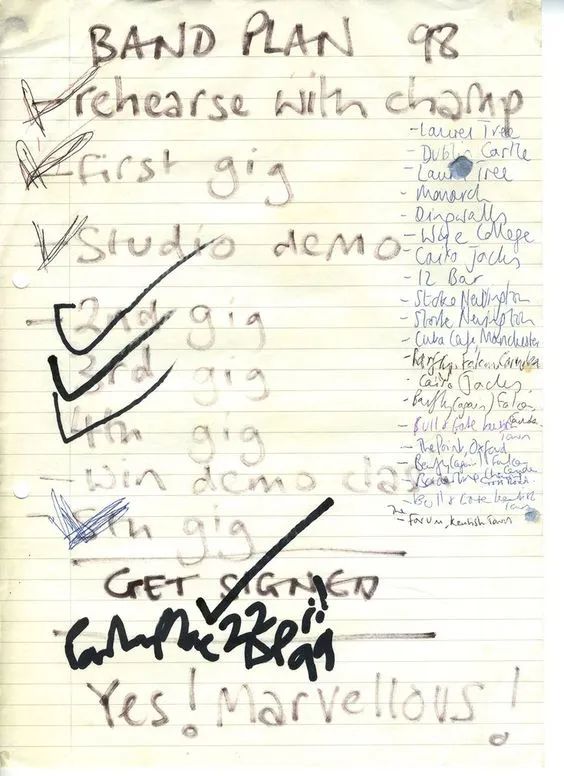 BAND PLAN 98
rehearse with champ
- first gig
- Studio demo
- 2nd gig
- 3rd gig
- 4th gig
- win demo clas
- 5th gig
GET SIGNED
22 99 !!
Yes! Marvellous!
- Laurel Tree
- Dublin Castle
- Laurel Tree
- Monarch
- Dingwalls
- College
- Cairo Jacks
- 12 Bar
- Stoke Newington
- Stoke Newington
- Cuba Cafe, Manchester
- Barfly, Falcon, Camden
- Cairo Jacks
- Barfly (again) Falcon
- Bull & Gate Kentish Town
- The Point, Oxford
- Barfly (again) Falcon Camden
- Borderline,
- Bull & Gate Kentish Town
- Forum, Kentish Town